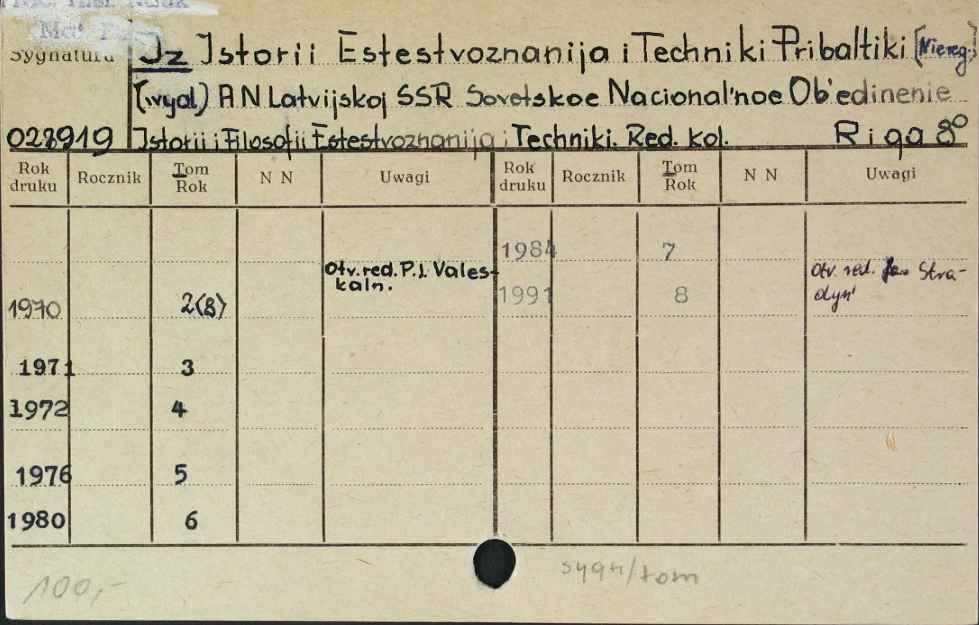 Sygnatura
Iz Istorii Estestvoznanija i Techniki Pribaltiki [Niereg.]
(wyd) AN Latvijskoj SSR Sovetskoe Nacional'noe Ob'edinenie
028919 Istorii i Filosofii Estestvoznanija i Techniki. Red. kol. Riga 8°
Rok druku Rocznik Tom Rok N N Uwagi Rok druku Rocznik Tom Rok N N Uwagi
1984 7
Otv. red. P.I. Vales-kaln. Otv. red. Jan Stra-dyn'
1970 2(8) 1991 8
1971 3
1972 4
1976 5
1980 6
100,- sygn/tom